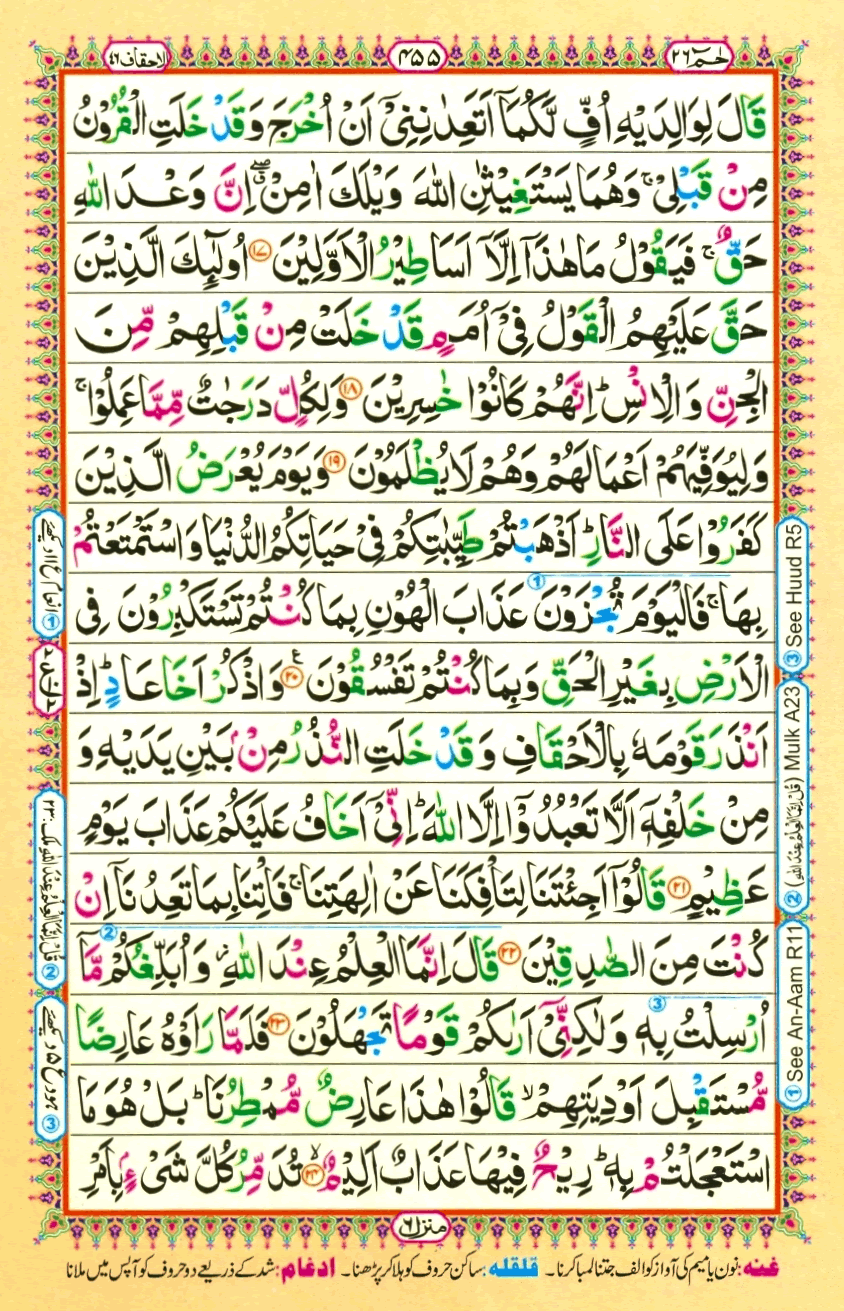 حٰمٓ ٢٦
٤٥٥
الاحقاف ٤٦
قَالَ لِوَالِدَيْهِ اُفٍّ لَّكُمَاۤ اَتَعِدٰنِنِىْۤ اَنْ اُخْرَجَ وَقَدْ خَلَتِ الْقُرُوْنُ
مِنْ قَبْلِىْ ۚ وَهُمَا يَسْتَغِيْثٰنِ اللّٰهَ وَيْلَكَ اٰمِنْ ۖ اِنَّ وَعْدَ اللّٰهِ
حَقٌّ ۚ فَيَقُوْلُ مَا هٰذَاۤ اِلَّاۤ اَسَاطِيْرُ الْاَوَّلِيْنَ ١٧ اُولٰٓئِكَ الَّذِيْنَ
حَقَّ عَلَيْهِمُ الْقَوْلُ فِىْۤ اُمَمٍ قَدْ خَلَتْ مِنْ قَبْلِهِمْ مِّنَ
الْجِنِّ وَالْاِنْسِ ؕ اِنَّهُمْ كَانُوْا خٰسِرِيْنَ ١٨ وَلِكُلٍّ دَرَجٰتٌ مِّمَّا عَمِلُوْا ۚ
وَلِيُوَفِّيَهُمْ اَعْمَالَهُمْ وَهُمْ لَا يُظْلَمُوْنَ ١٩ وَيَوْمَ يُعْرَضُ الَّذِيْنَ
كَفَرُوْا عَلَى النَّارِ ؕ اَذْهَبْتُمْ طَيِّبٰتِكُمْ فِىْ حَيَاتِكُمُ الدُّنْيَا وَاسْتَمْتَعْتُمْ
بِهَا ۚ فَالْيَوْمَ تُجْزَوْنَ عَذَابَ الْهُوْنِ بِمَا كُنْتُمْ تَسْتَكْبِرُوْنَ فِى
الْاَرْضِ بِغَيْرِ الْحَقِّ وَبِمَا كُنْتُمْ تَفْسُقُوْنَ ٢٠ وَاذْكُرْ اَخَا عَادٍ ؕ اِذْ
اَنْذَرَ قَوْمَهٗ بِالْاَحْقَافِ وَقَدْ خَلَتِ النُّذُرُ مِنْۢ بَيْنِ يَدَيْهِ وَ
مِنْ خَلْفِهٖۤ اَلَّا تَعْبُدُوْۤا اِلَّا اللّٰهَ ؕ اِنِّىْۤ اَخَافُ عَلَيْكُمْ عَذَابَ يَوْمٍ
عَظِيْمٍ ٢١ قَالُوْۤا اَجِئْتَنَا لِتَاْفِكَنَا عَنْ اٰلِهَتِنَا ۚ فَاْتِنَا بِمَا تَعِدُنَاۤ اِنْ
كُنْتَ مِنَ الصّٰدِقِيْنَ ٢٢ قَالَ اِنَّمَا الْعِلْمُ عِنْدَ اللّٰهِ ۖ وَاُبَلِّغُكُمْ مَّاۤ
اُرْسِلْتُ بِهٖ وَلٰكِنِّىْۤ اَرٰىكُمْ قَوْمًا تَجْهَلُوْنَ ٢٣ فَلَمَّا رَاَوْهُ عَارِضًا
مُّسْتَقْبِلَ اَوْدِيَتِهِمْ ۙ قَالُوْا هٰذَا عَارِضٌ مُّمْطِرُنَا ؕ بَلْ هُوَ مَا
اسْتَعْجَلْتُمْ بِهٖ ؕ رِيْحٌ فِيْهَا عَذَابٌ اَلِيْمٌ ۙ ٢٤ تُدَمِّرُ كُلَّ شَىْءٍۭ بِاَمْرِ
① See An-Aam R11
② (قُلْ اِنَّمَا الْعِلْمُ عِنْدَ اللّٰهِ) Mulk A23
③ See Huud R5
① انعام ع ١١ دیکھیے
② قُلْ اِنَّمَا الْعِلْمُ عِنْدَ اللّٰهِ ملک ۲۳
③ ہود ع ۵ دیکھیے
منزل ٦
غنہ: نون یا میم کی آواز کو الف جتنا لمبا کرنا۔ قلقلہ: ساکن حروف کو ہلا کر پڑھنا۔ ادغام: شد کے ذریعے دو حروف کو آپس میں ملانا